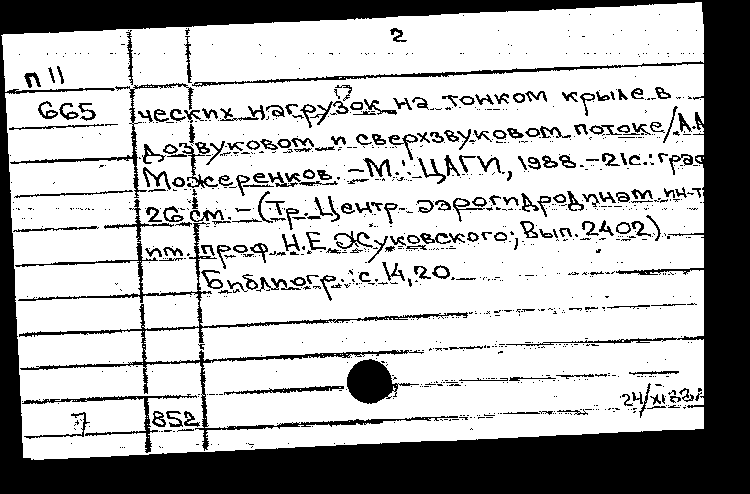 2
П II
665 ческих нагрузок на тонком крыле в
дозвуковом и сверхзвуковом потоке/А.А.
Можеренков. – М.: ЦАГИ, 1988. – 21с.: граф
26 см. – (Тр. Центр. аэрогидродинам ин-т
им. проф. Н.Е. Жуковского; Вып. 2402).
Библиогр.: с. 14, 20
7 852